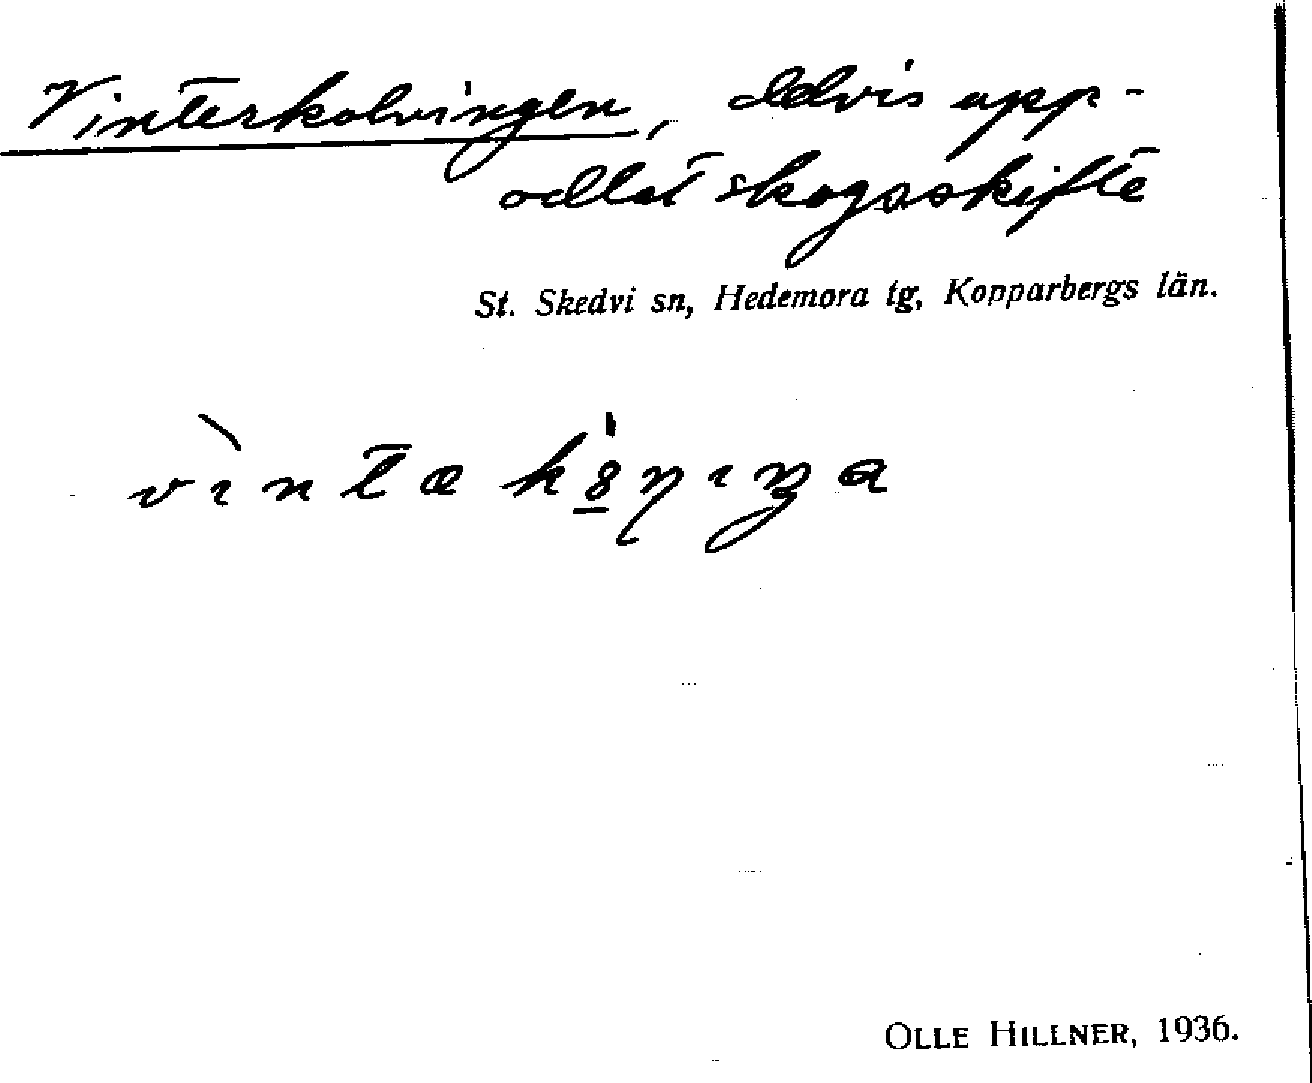 Vinterkolningen, delvis upp-
odlat skogsskifte
St. Skedvi sn, Hedemora tg, Kopparbergs län.
OLLE HILLNER, 1936.